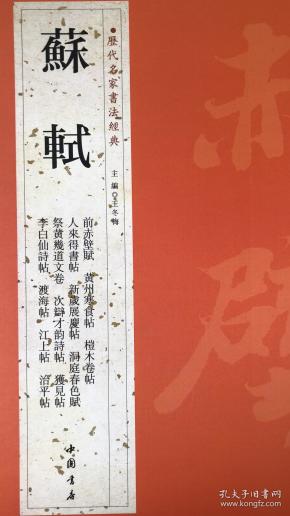 蘇軾
●歷代名家書法經典
主編◎王冬梅
前赤壁賦 黃州寒食帖 榿木卷帖
人來得書帖 新歲展慶帖 洞庭春色賦
祭黃幾道文卷 次辯才韻詩帖 獲見帖
李白仙詩帖 渡海帖 江上帖 治平帖
中國書店
赤壁
孔夫子旧书网
www.kongfz.com